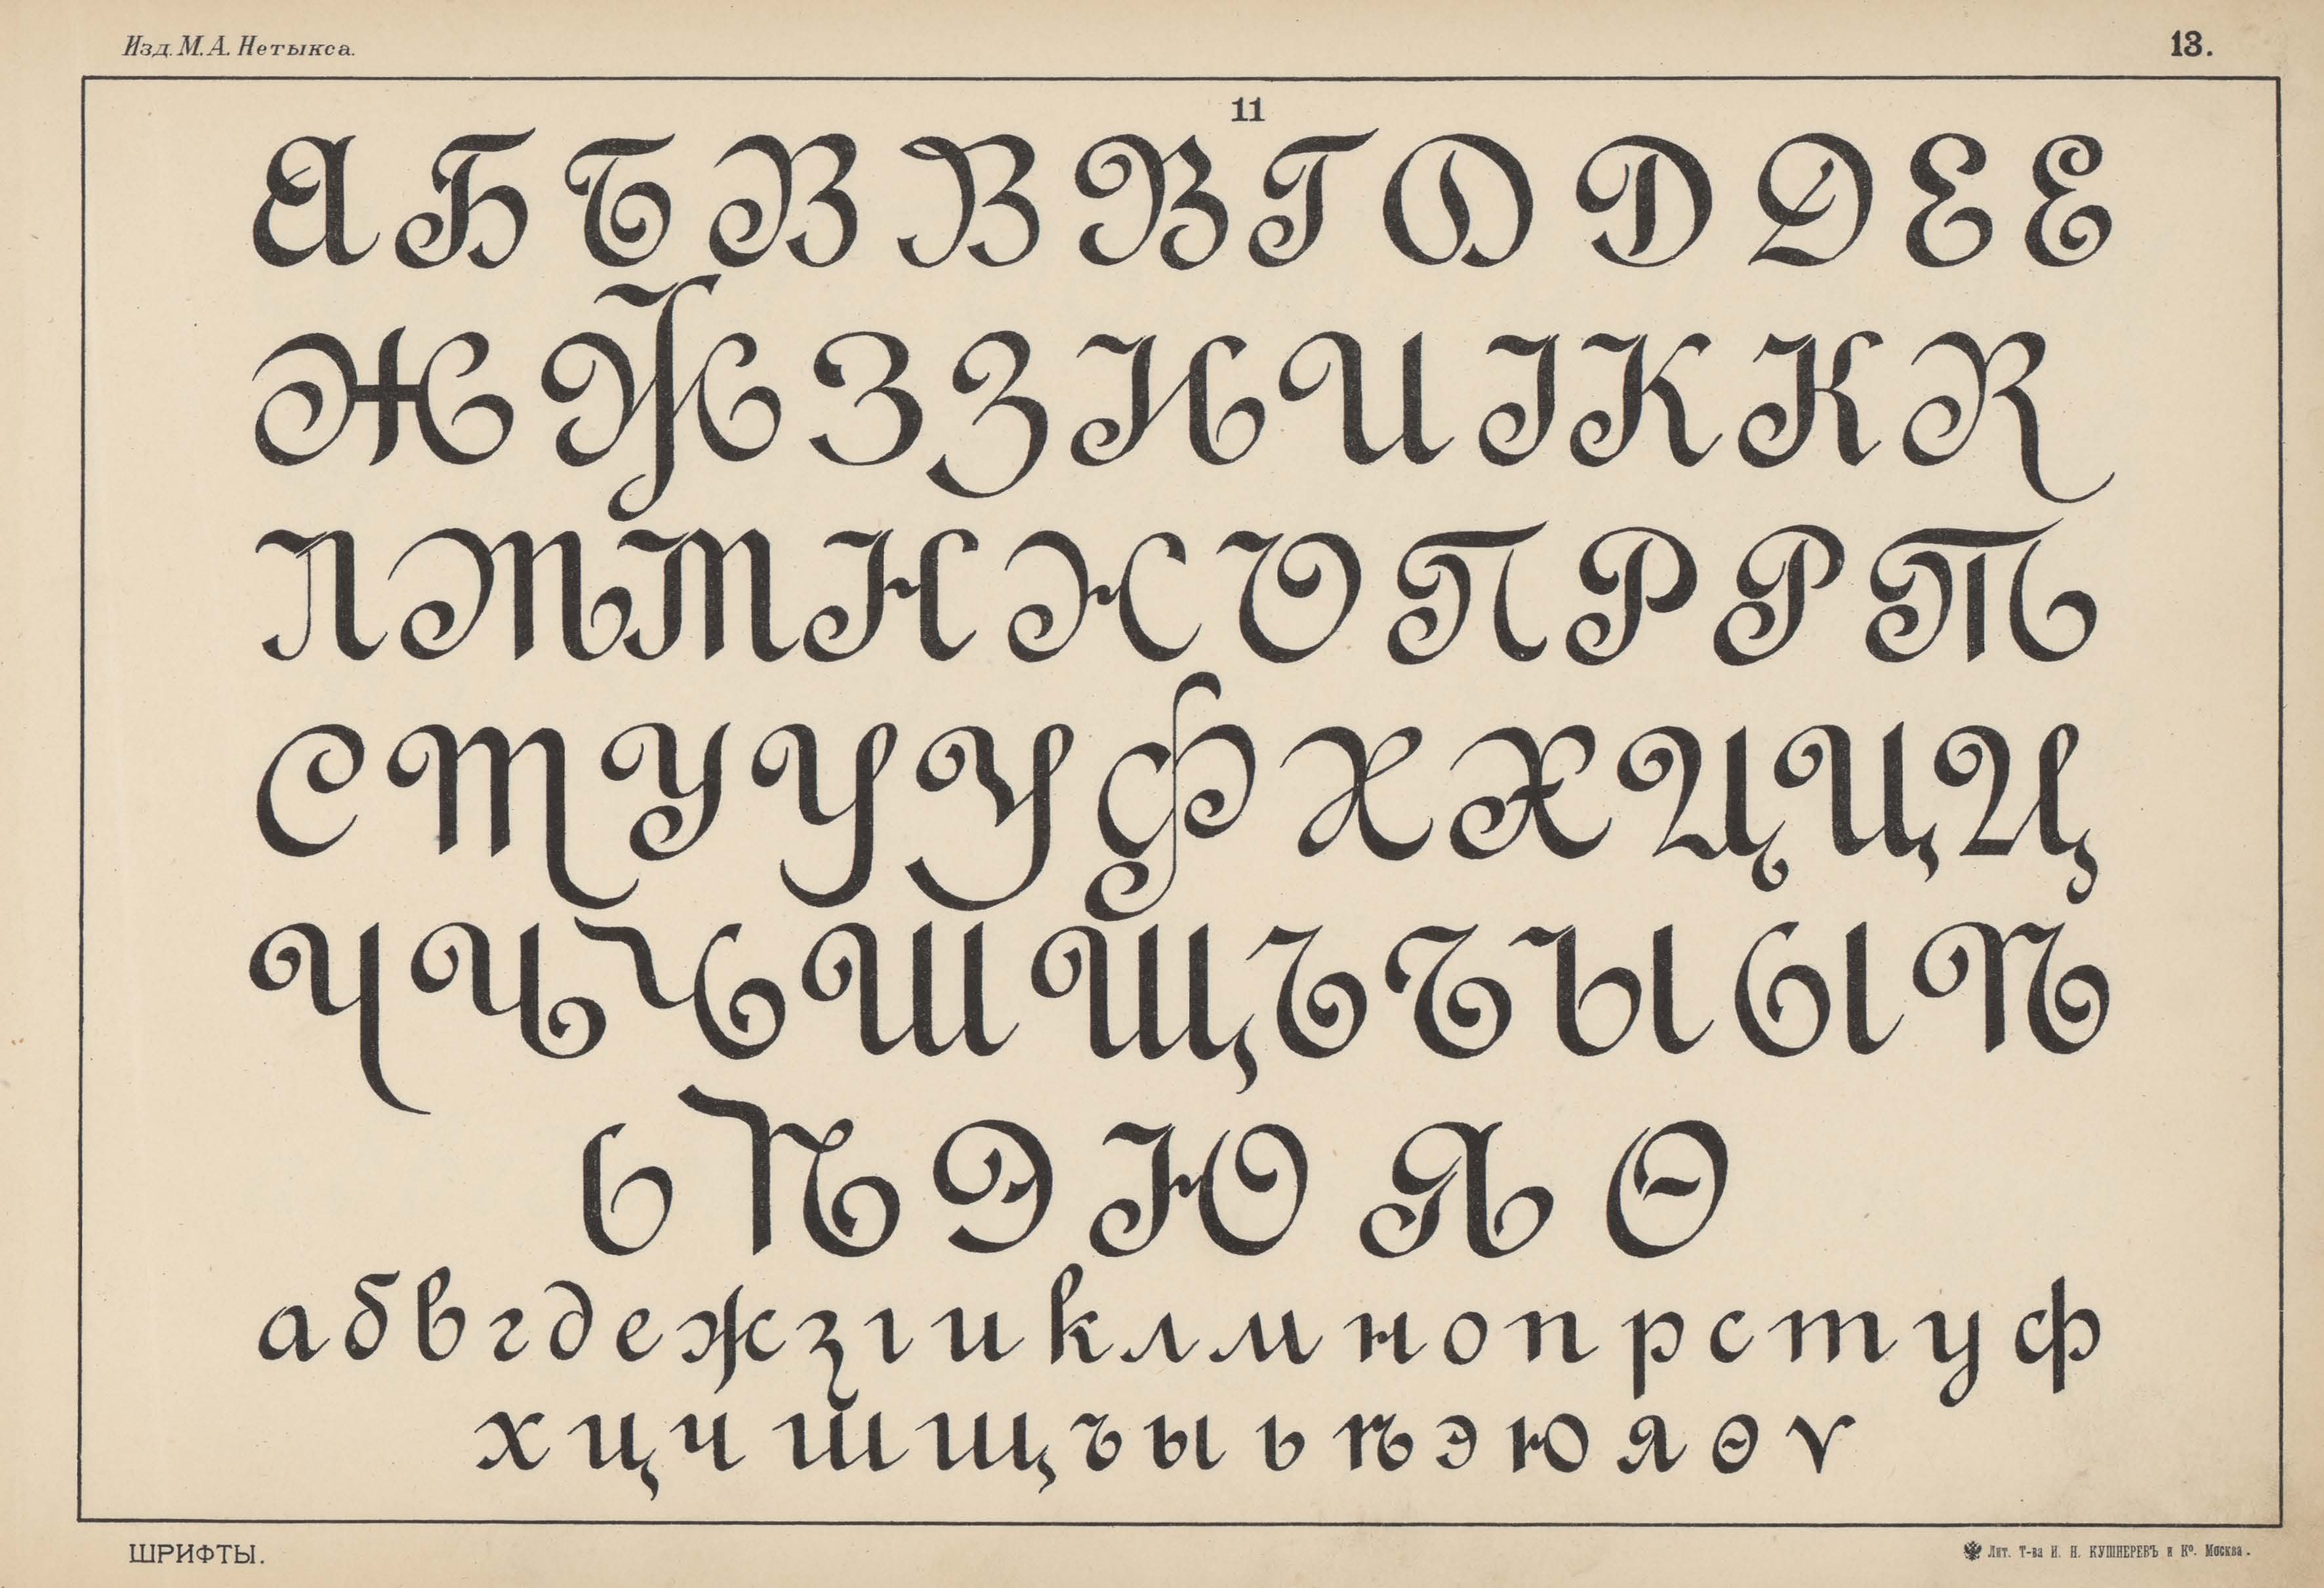 Изд. М. А. Нетыкса.
13.
11
А Б Б В В В Г Д Д Д Е Е
Ж Ж З З И И І К К К
Л М М Н Н О П Р Р Т
С Т У У У Ф Х Х Ц Ц Ц
Ч Ч Ч Ш Щ Ъ Ъ Ы Ы Ѣ
Ь Ѣ Э Ю Я Ѳ
а б в г д е ж з і и к л м н о п р с т у ф
х ц ч ш щ ъ ы ь ѣ э ю я ѳ ѵ
ШРИФТЫ.
Лит. Т-ва И. Н. КУШНЕРЕВЪ и Ко. Москва.